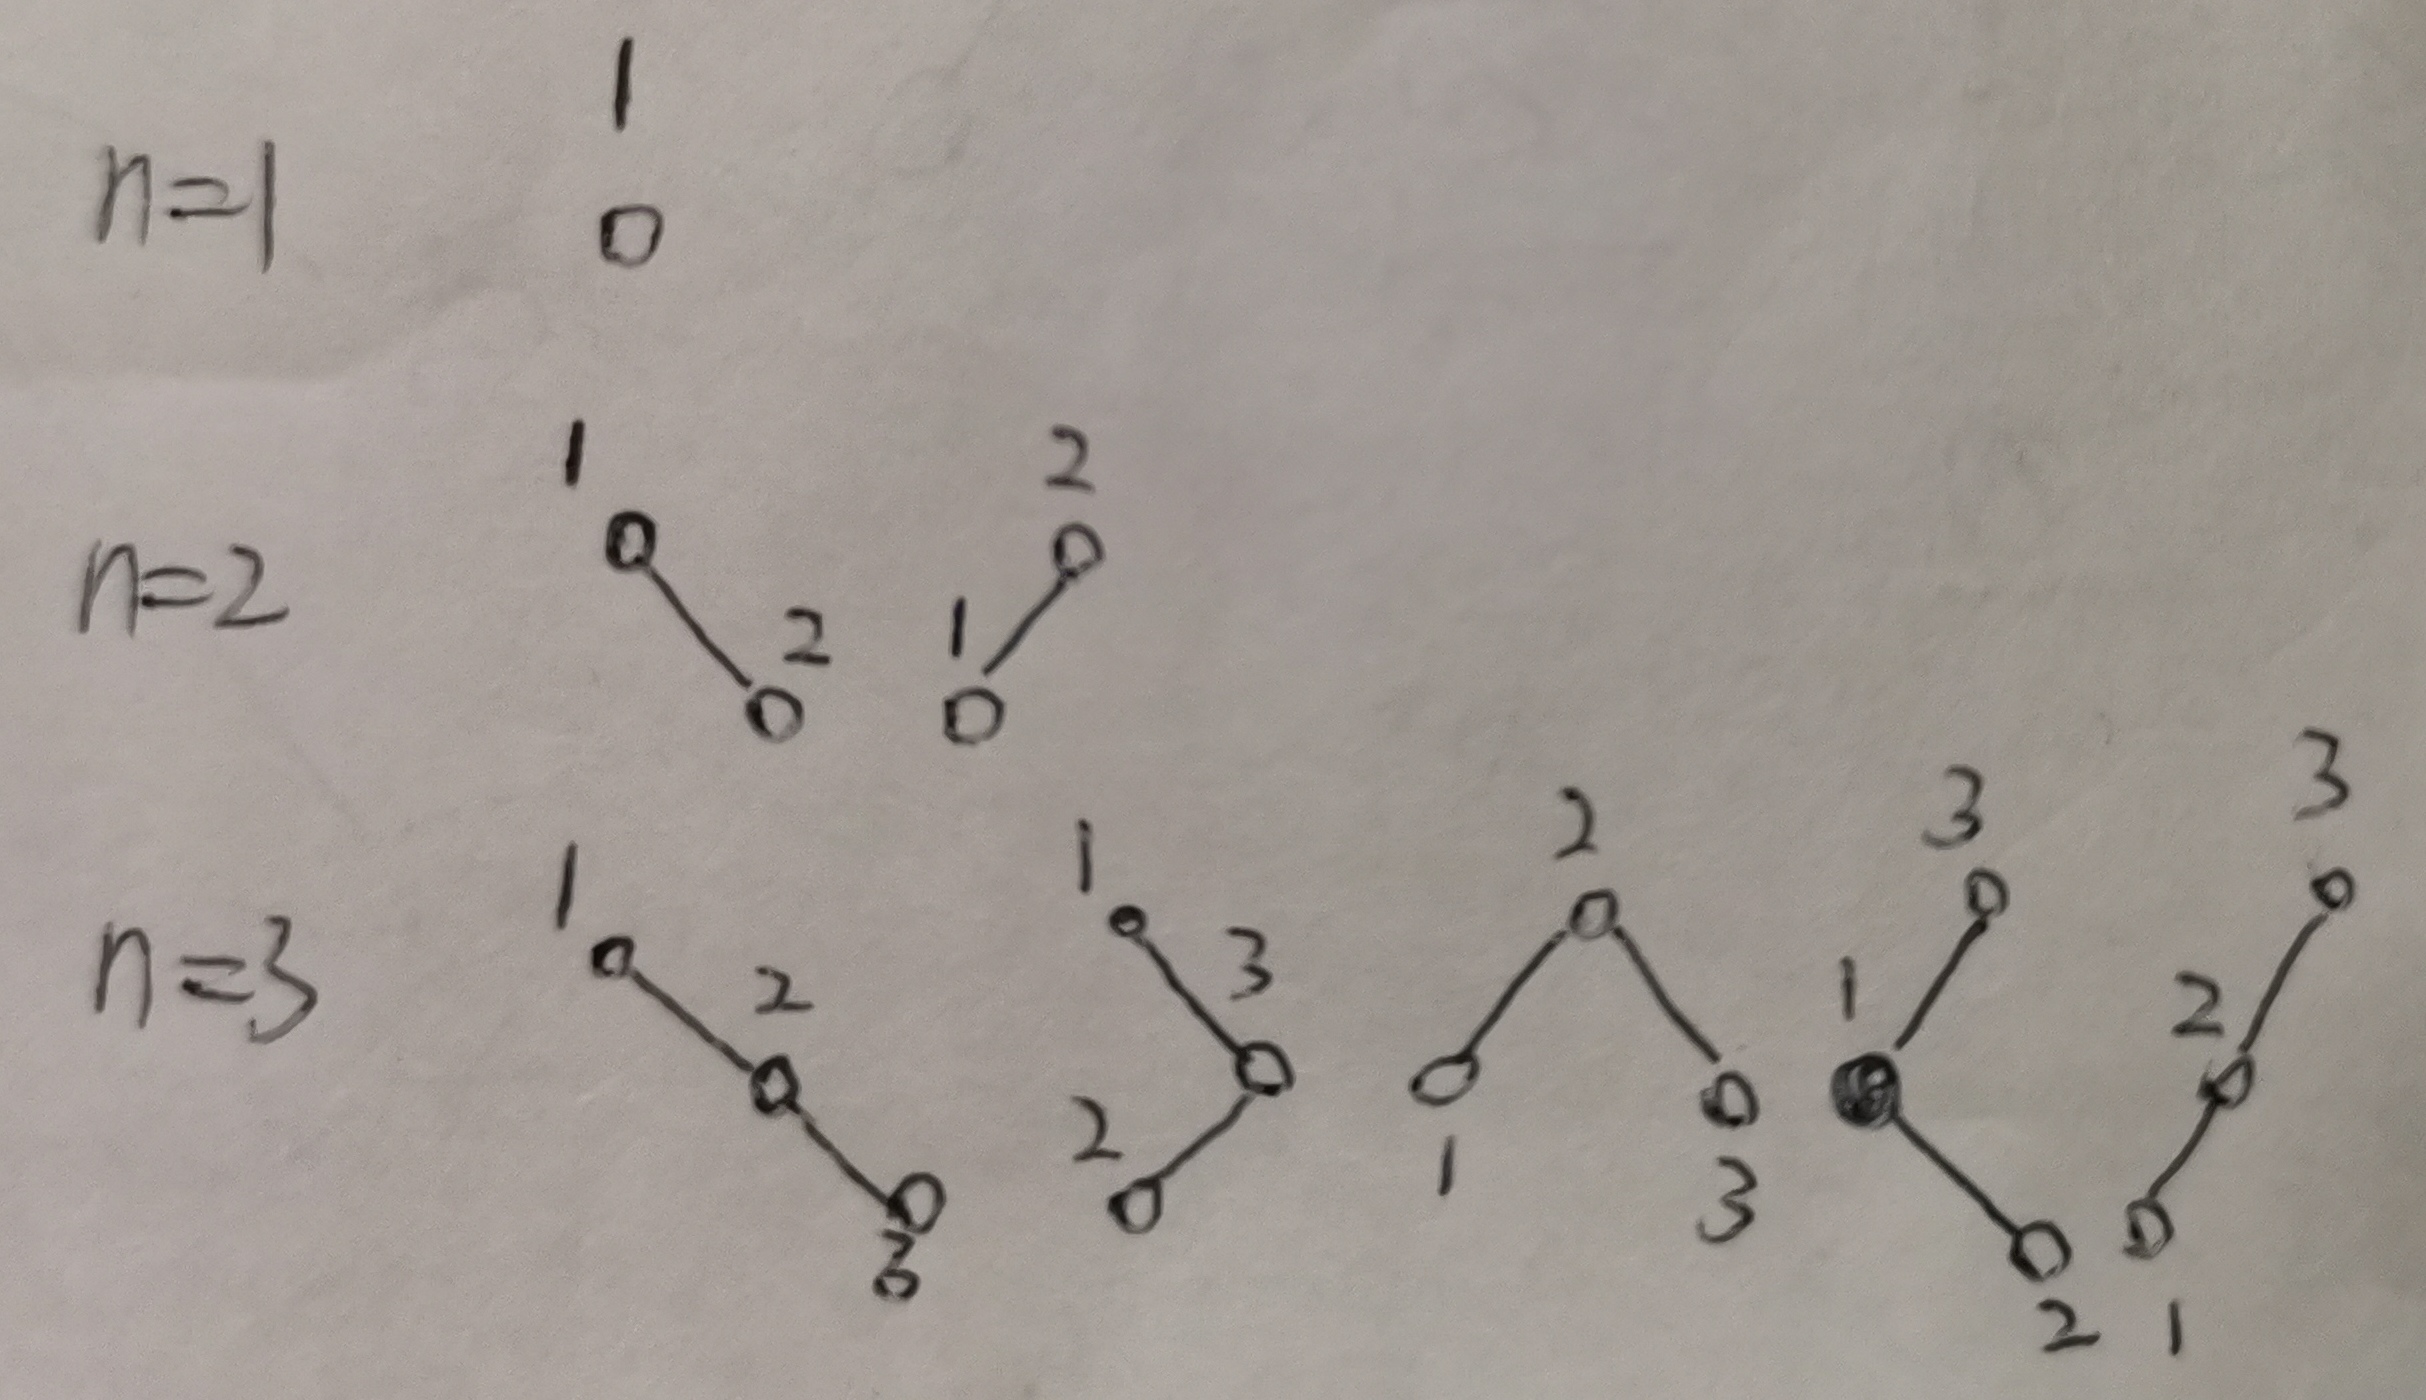 n=1 1
n=2 1 2 1 2
n=3 1 2 3 1 3 2 2 1 3 3 1 2 3 2 1